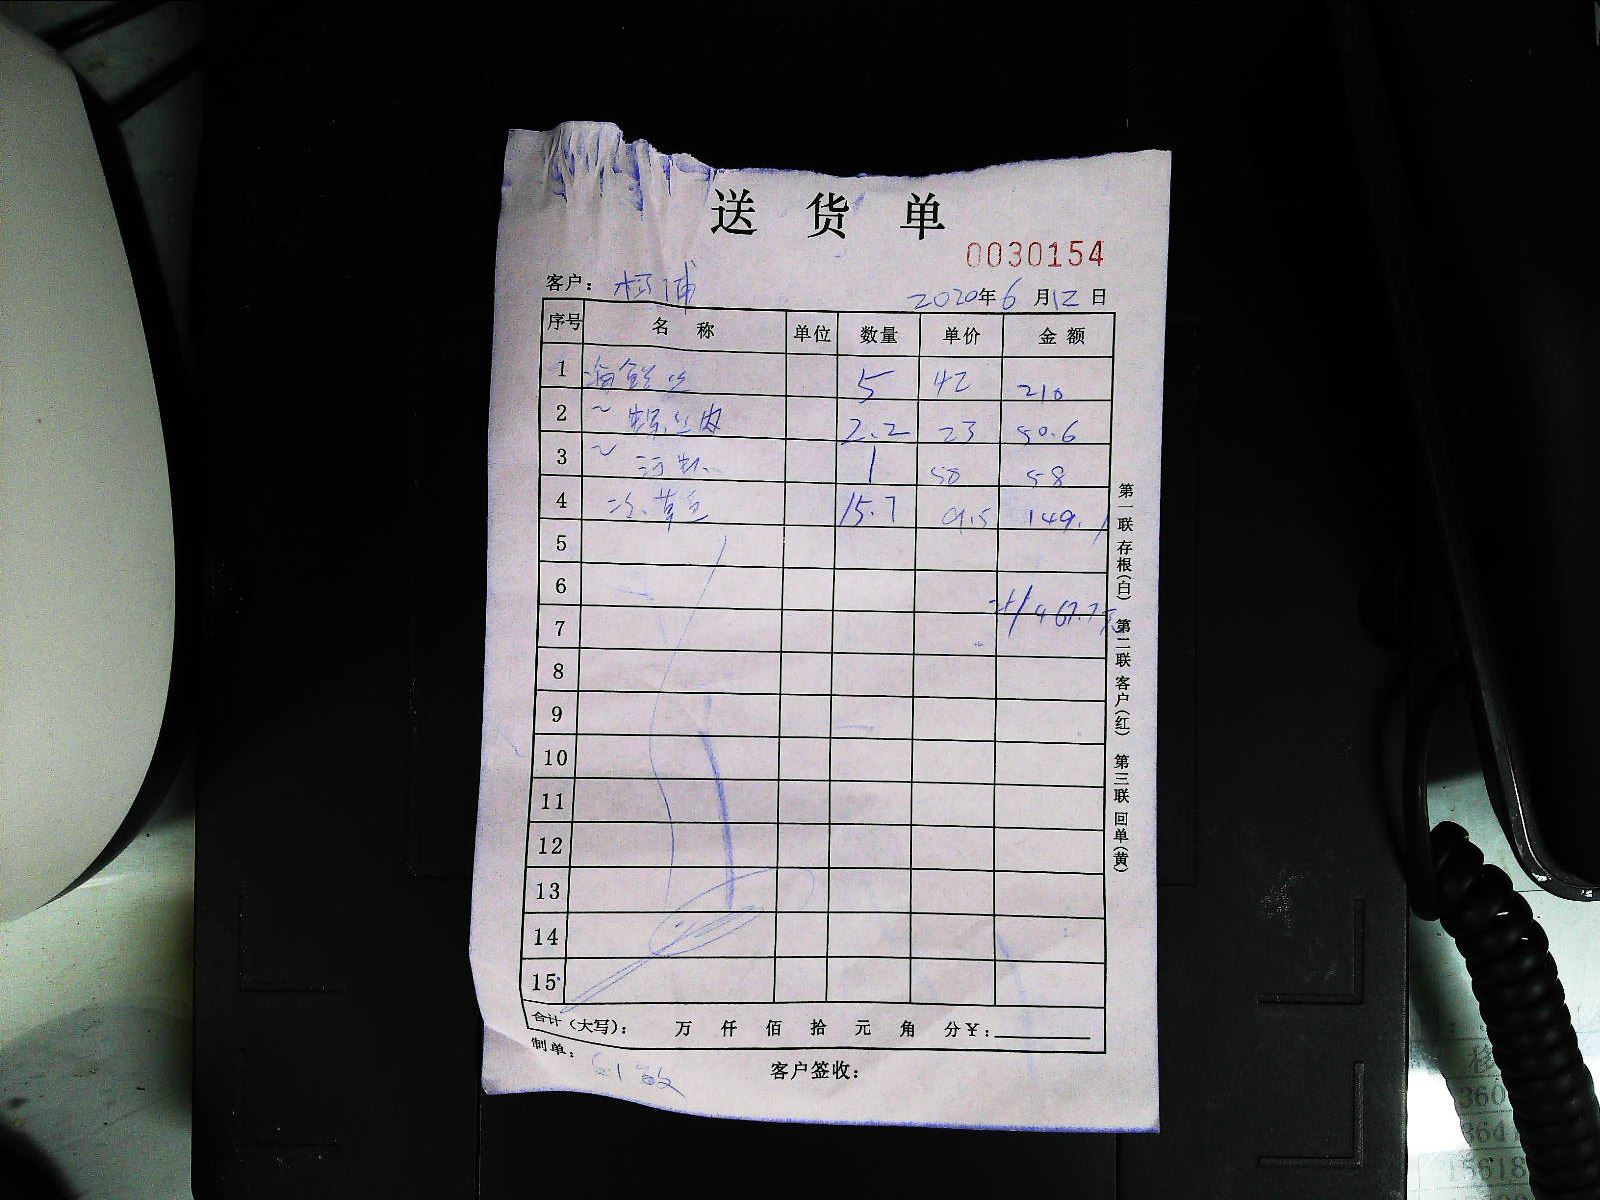 送货单
0030154
客户：
2020年6月12日
序号 名称 单位 数量 单价 金额
1 海鲜 5 42 210
2 ~ 螺丝肉 2.2 23 50.6
3 ~ 河虾 1 58 58
4 冻、草鱼 15.7 9.5 149.1
5
6
计467.7元
7
8
9
10
11
12
13
14
15
合计（大写）： 万 仟 佰 拾 元 角 分￥：
制单：
客户签收：
第一联 存根（白） 第二联 客户（红） 第三联 回单（黄）
360
364
15618